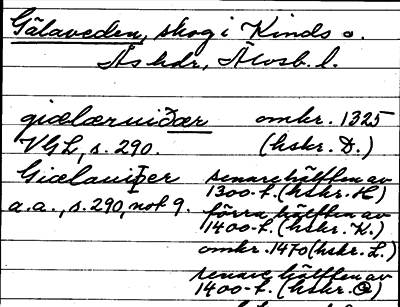 Gälaveden, skog i Kinds o.
Ås hdr, Älvsb. l.
giælærniðær omkr. 1325
VGL, s. 290. (hskr. D.)
Giælauiþer senare hälften av
1300-t. (hskr. H)
a.a., s. 290, not 9. förra hälften av
1400-t. (hskr. K.)
omkr. 1470 (hskr. L.)
senare hälften av
1400-t. (hskr. O)